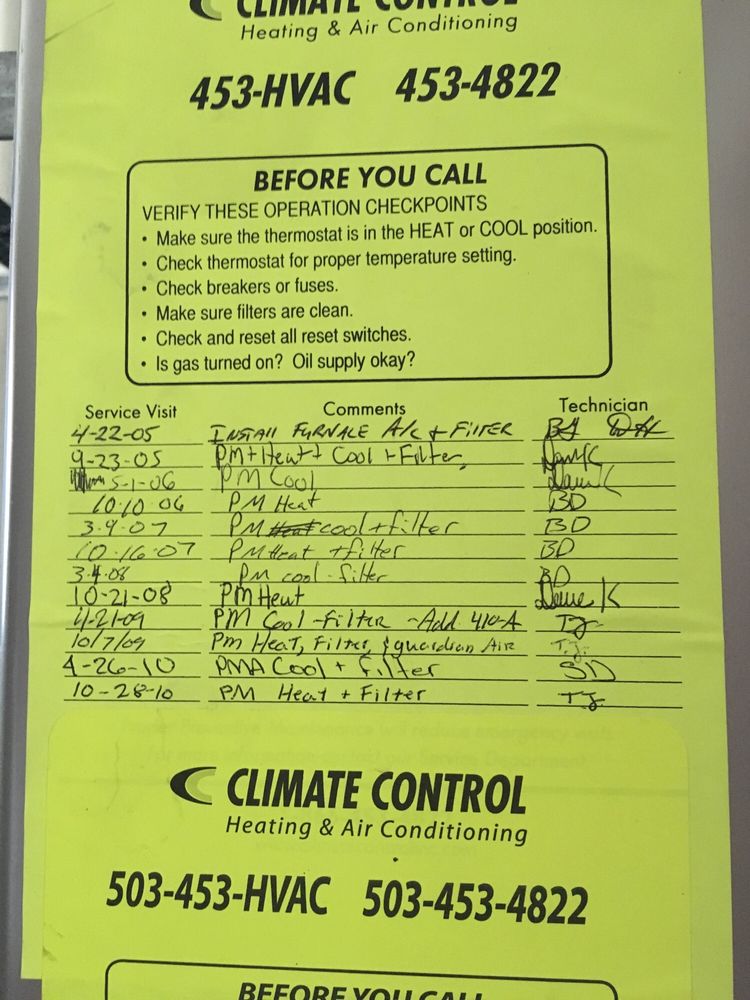 CLIMATE CONTROL
Heating & Air Conditioning
453-HVAC 453-4822
BEFORE YOU CALL
VERIFY THESE OPERATION CHECKPOINTS
• Make sure the thermostat is in the HEAT or COOL position.
• Check thermostat for proper temperature setting.
• Check breakers or fuses.
• Make sure filters are clean.
• Check and reset all reset switches.
• Is gas turned on? Oil supply okay?
Service Visit Comments Technician
4-22-05 INSTALL FURNACE A/C + FILTER
9-23-05 PM + Heat + Cool + Filter Dave K
5-1-06 PM Cool Dave K
10-10 06 PM Heat BD
3-9-07 PM Heat cool + filter BD
10-16-07 PM Heat + filter BD
3-4-08 PM cool - filter BD
10-21-08 PM Heat Dave K
4-21-09 PM Cool - Filter - Add 410-A TJ
10/7/09 PM HEAT, Filter, & guardian AIR T.J.
4-26-10 PMA Cool + filter SD
10-28-10 PM Heat + Filter TJ
CLIMATE CONTROL
Heating & Air Conditioning
503-453-HVAC 503-453-4822
BEFORE YOU CALL